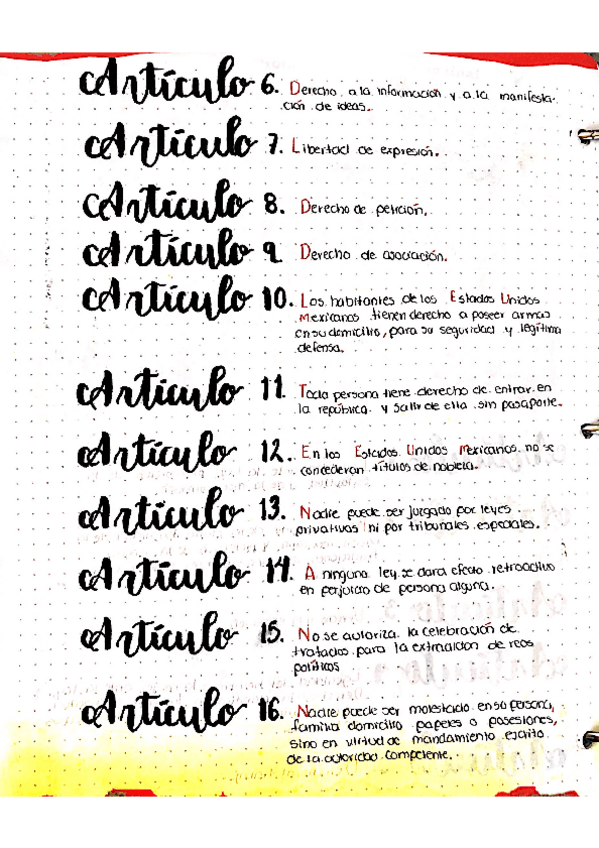 Artículo 6. Derecho a la información y a la manifesta-
ción de ideas.
Artículo 7. Libertad de expresión.
Artículo 8. Derecho de petición.
Artículo 9 Derecho de asociación.
Artículo 10. Los habitantes de los Estados Unidos
Mexicanos tienen derecho a poseer armas
en su domicilio, para su seguridad y legítima
defensa.
Artículo 11. Toda persona tiene derecho de entrar en
la república y salir de ella sin pasaporte.
Artículo 12. En los Estados Unidos Mexicanos no se
concederan títulos de nobleza.
Artículo 13. Nadie puede ser juzgado por leyes
privativas ni por tribunales especiales.
Artículo 14. A ninguna ley se dara efecto retroactivo
en perjuicio de persona alguna.
Artículo 15. No se autoriza la celebración de
tratados para la extradición de reos
políticos
Artículo 16. Nadie puede ser molestado en su persona,
familia domicilio papeles o posesiones,
sino en virtud de mandamiento escrito
de la autoridad competente.